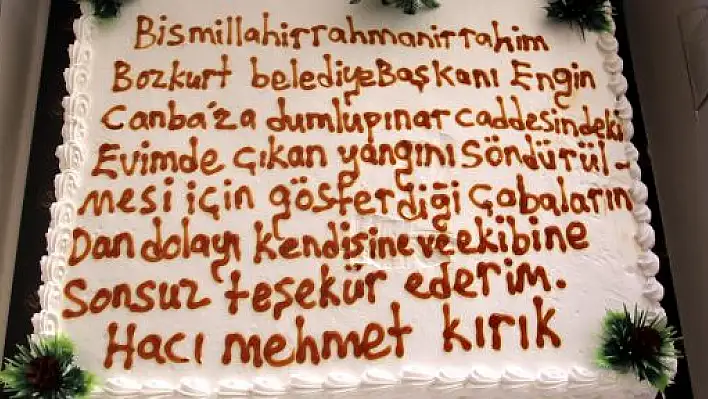 Bismillahirrahmanirrahim
Bozkurt belediye Başkanı Engin
Canba'za dumlupınar caddesindeki
Evimde çıkan yangını söndürül-
mesi için gösterdiği Çabaların
Dan dolayı kendisine ve ekibine
Sonsuz teşekür ederim.
Hacı mehmet kırık